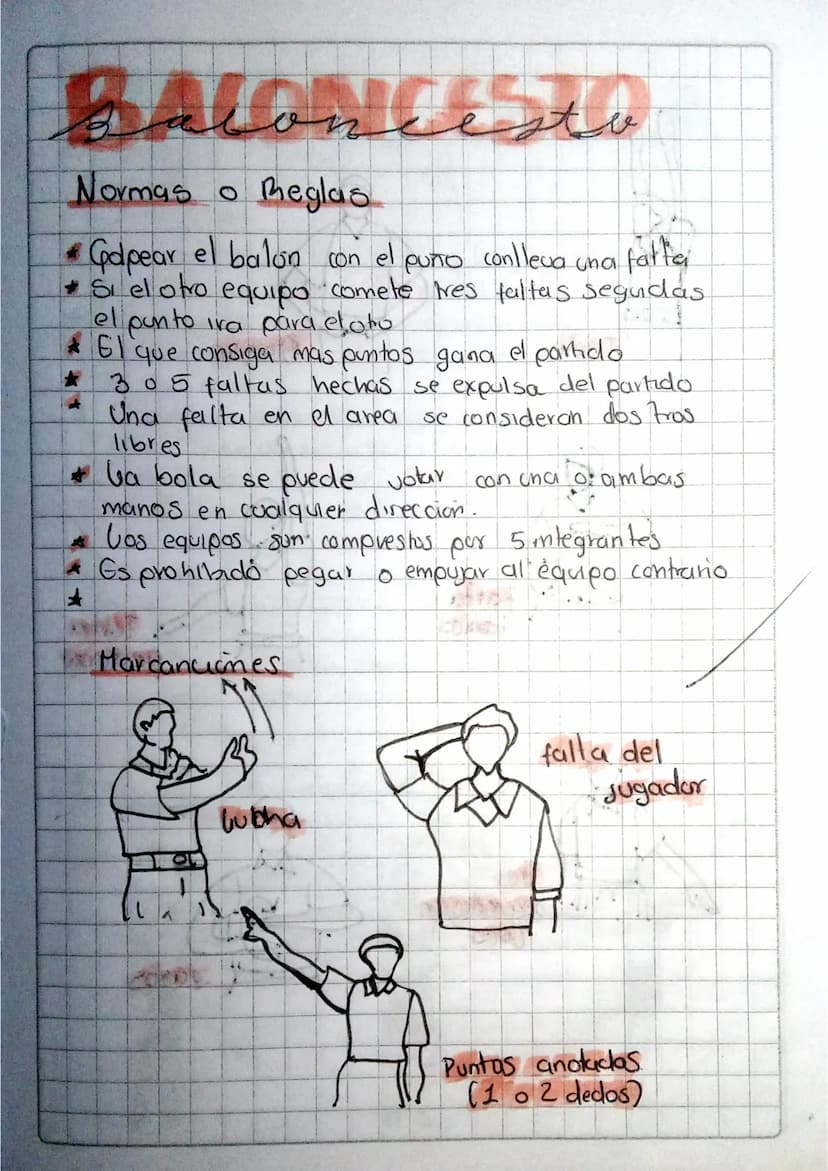 BALONCESTO
Baloncesto
Normas o Reglas
★ Golpear el balon con el puño conlleva una falta
★ Si el otro equipo comete tres faltas seguidas
el punto ira para el otro
★ El que consiga mas puntos gana el partido
★ 3 o 5 faltas hechas se expulsa del partido
★ Una falta en el area se consideran dos tros
libres
★ La bola se puede votar con una o ambas
manos en cualquier direccion.
★ Los equipos son compuestos por 5 integrantes
★ Es prohibido pegar o empujar al equipo contrario
★
Marcanciones
lubha
falla del
jugador
Puntos anotados
(1 o 2 dedos)